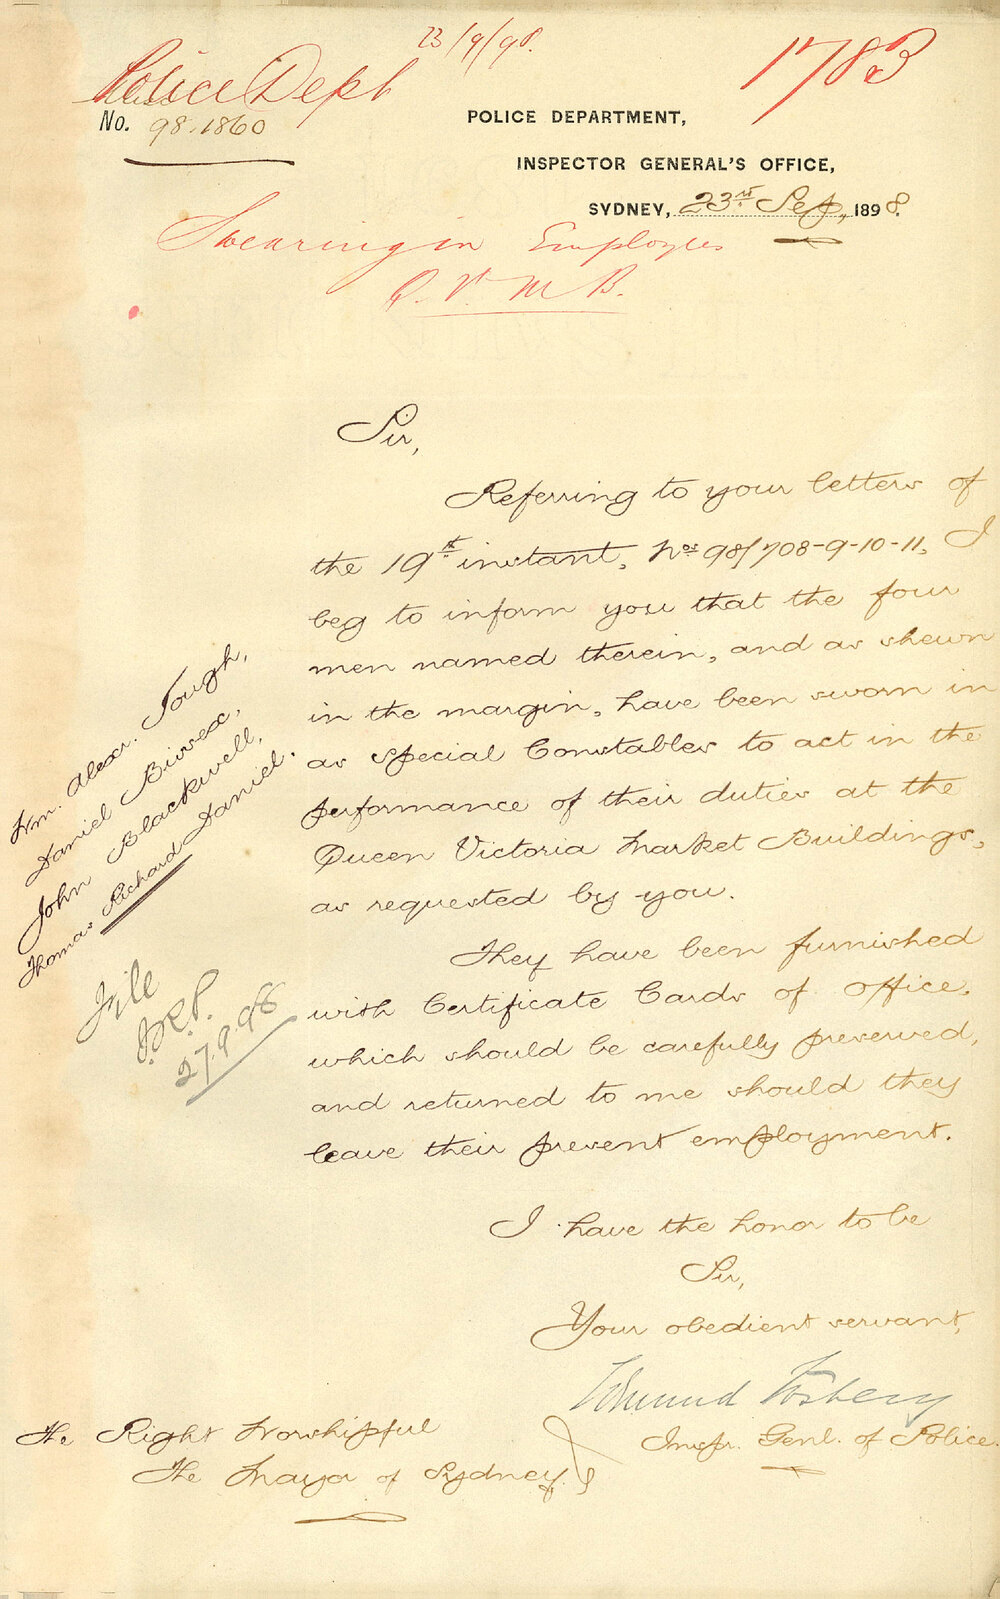 23/9/98.
1783
Police Dept
No. 98.1860
POLICE DEPARTMENT,
INSPECTOR GENERAL'S OFFICE,
SYDNEY, 23rd Sep, 1898.
Swearing in Employees
Q. V. M B.
Sir,
Referring to your letters of
the 19th instant, Nos 98/708-9-10-11, I
beg to inform you that the four
men named therein, and as shewn
in the margin, have been sworn in
as special Constables to act in the
performance of their duties at the
Queen Victoria Market Buildings,
as requested by you.
Wm. Alexr. Tough,
Daniel
John Blackwell,
Thomas Richard Daniel.
File
27.9.98
They have been furnished
with Certificate Cards of office,
which should be carefully preserved,
and returned to me should they
leave their present employment.
I have the honor to be
Sir,
Your obedient servant,
Edmund Fosbery
Inspr. Genl. of Police.
The Right Worshipful
The Mayor of Sydney.